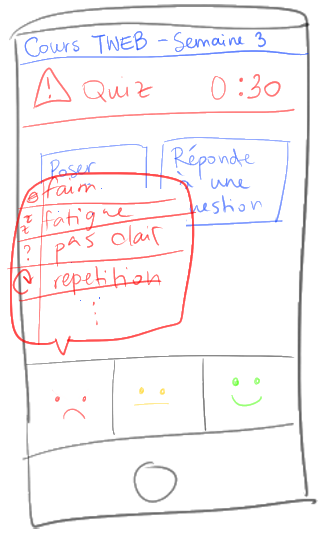 Cours TWEB - Semaine 3
Quiz 0:30
Poser
Réponde
à une
uestion
faim
zz fatigue
? pas clair
repetition
⋮